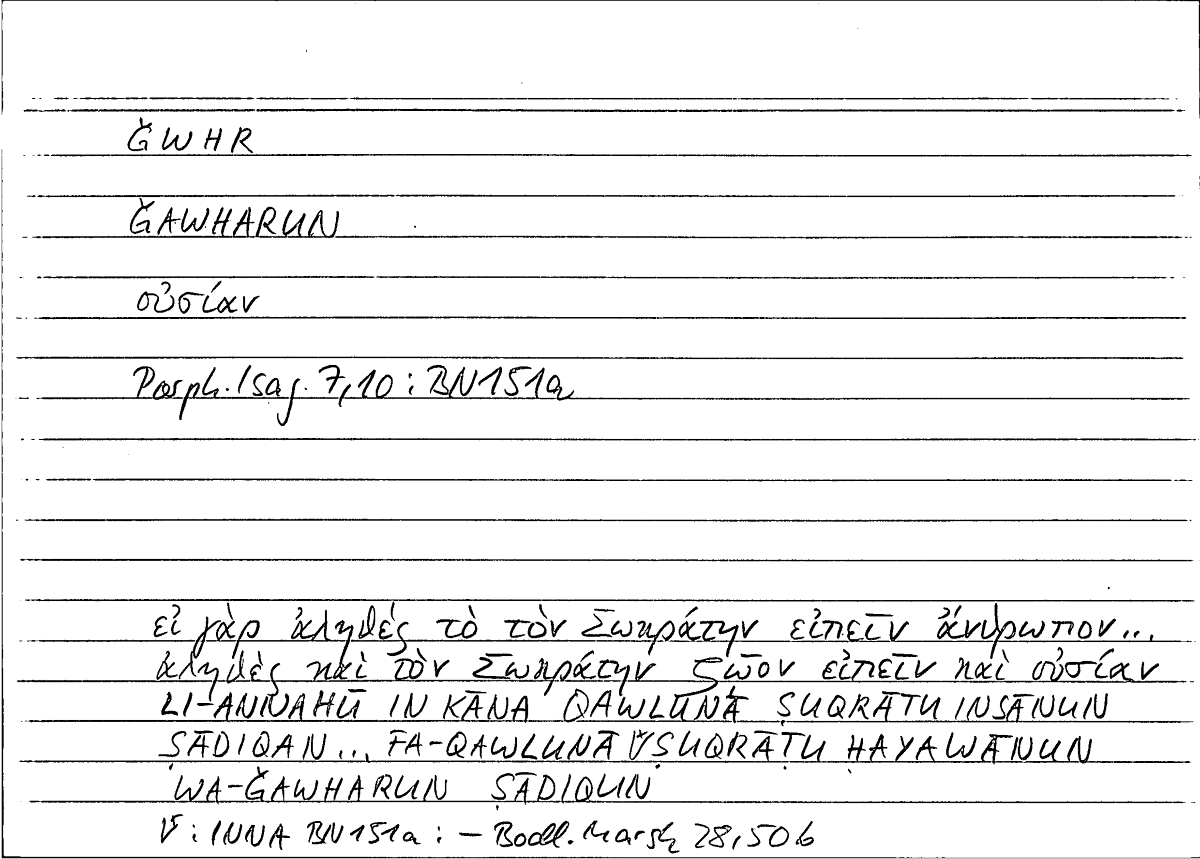 ǦWHR
ǦAWHARUN
οὐσίαν
Porph. Isag. 7,10 : BN151a
εἰ γὰρ ἀληθές τὸ τὸν Σωκράτην εἰπεῖν ἄνθρωπον...
ἀληθὲς καὶ τὸν Σωκράτην ζῷον εἰπεῖν καὶ οὐσίαν
LI-ANNAHŪ IN KĀNA QAWLUNĀ SUQRĀṬU INSĀNUN
ṢĀDIQAN... FA-QAWLUNĀ ⱽSUQRĀṬU ḤAYAWĀNUN
WA-ǦAWHARUN ṢĀDIQUN
V : INNA BN151a : – Bodl. Marsh 28,50b